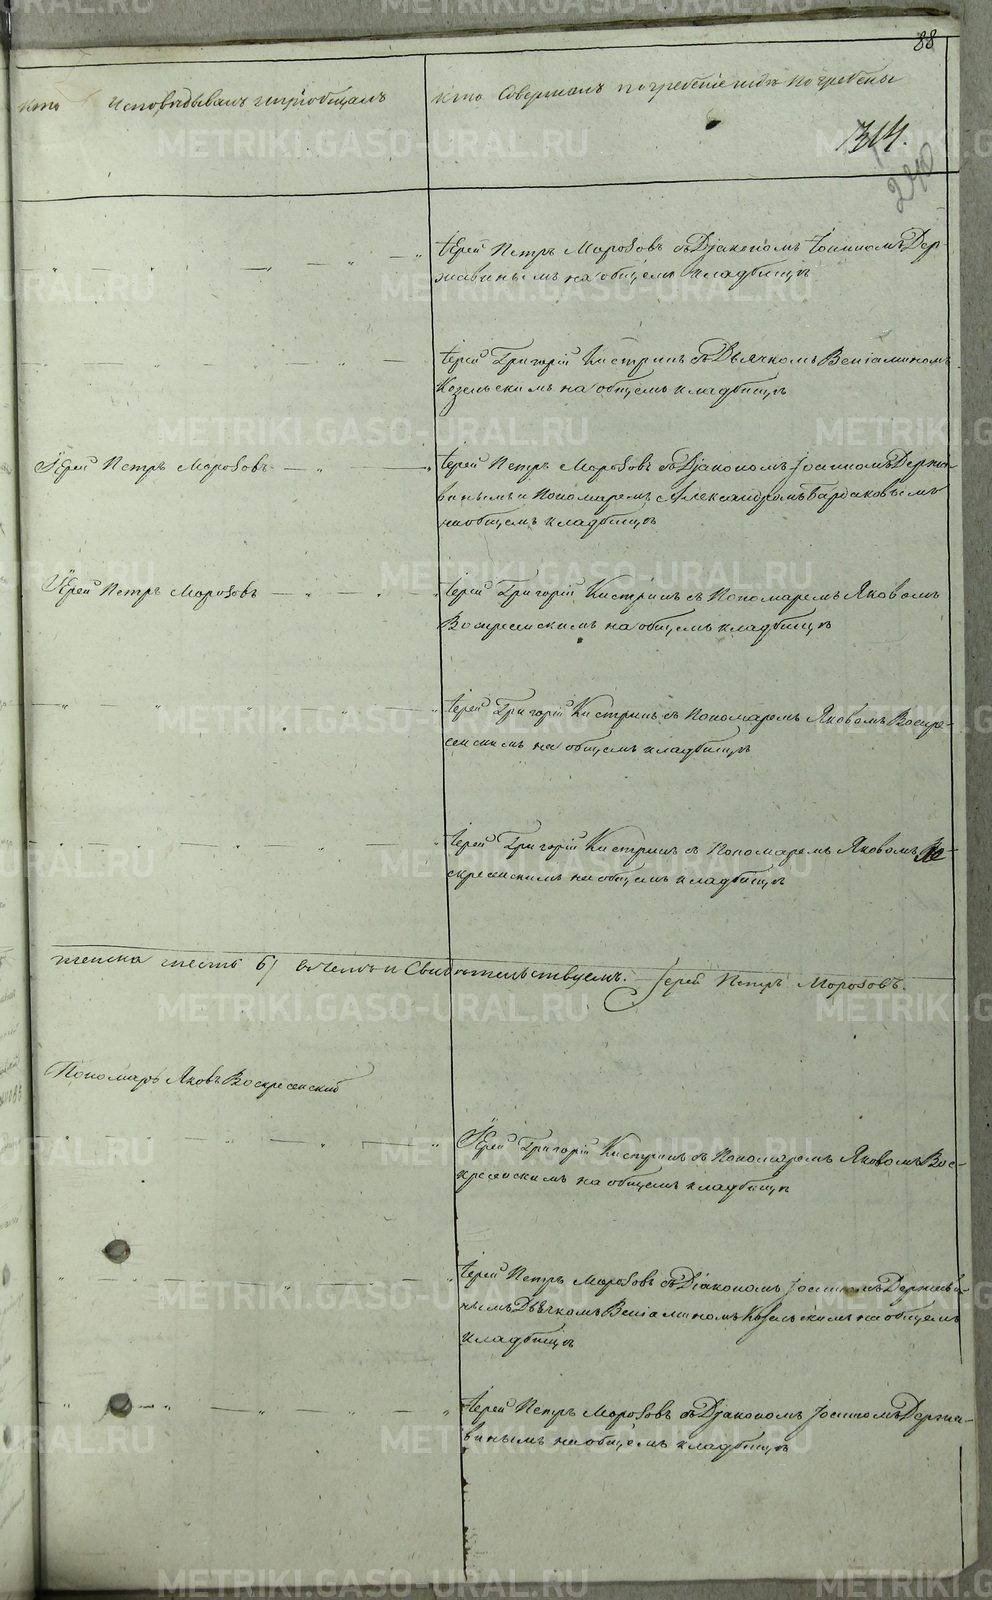 88
кто Исповѣдывалъ и пріобщалъ
кто Совершалъ погребеніе и гдѣ Погребены
1314.
240
Іерей Петръ Морозовъ съ Діакономъ Іоанномъ Дер-
жавинымъ на общемъ кладбищѣ
Іерей Григорій Кистринъ съ Дьячкомъ Веніаминомъ
Козельскимъ на общемъ кладбищѣ
Іерей Петръ Морозовъ
Іерей Петръ Морозовъ съ Діакономъ Іоанномъ Держа-
винымъ и Пономаремъ Александромъ Бардаковымъ
на общемъ кладбищѣ
Іерей Петръ Морозовъ
Іерей Григорій Кистринъ съ Пономаремъ Яковомъ
Воскресенскимъ на общемъ кладбищѣ
Іерей Григорій Кистринъ съ Пономаремъ Яковомъ Воскре-
сенскимъ на общемъ кладбищѣ
Іерей Григорій Кистринъ съ Пономаремъ Яковомъ Во-
скресенскимъ на общемъ кладбищѣ
женска шесть 6) въ чемъ и Свидѣтельствуемъ. Іерей Петръ Морозовъ.
Пономарь Яковъ Воскресенскій
Іерей Григорій Кистринъ съ Пономаремъ Яковомъ Вос-
кресенскимъ на общемъ кладбищѣ
Іерей Петръ Морозовъ съ Діакономъ Іоанномъ Держави-
нымъ Дьячкомъ Веніаминомъ Козельскимъ на общемъ
кладбищѣ
Іерей Петръ Морозовъ съ Діакономъ Іоанномъ Держа-
винымъ на общемъ кладбищѣ
METRIKI.GASO-URAL.RU